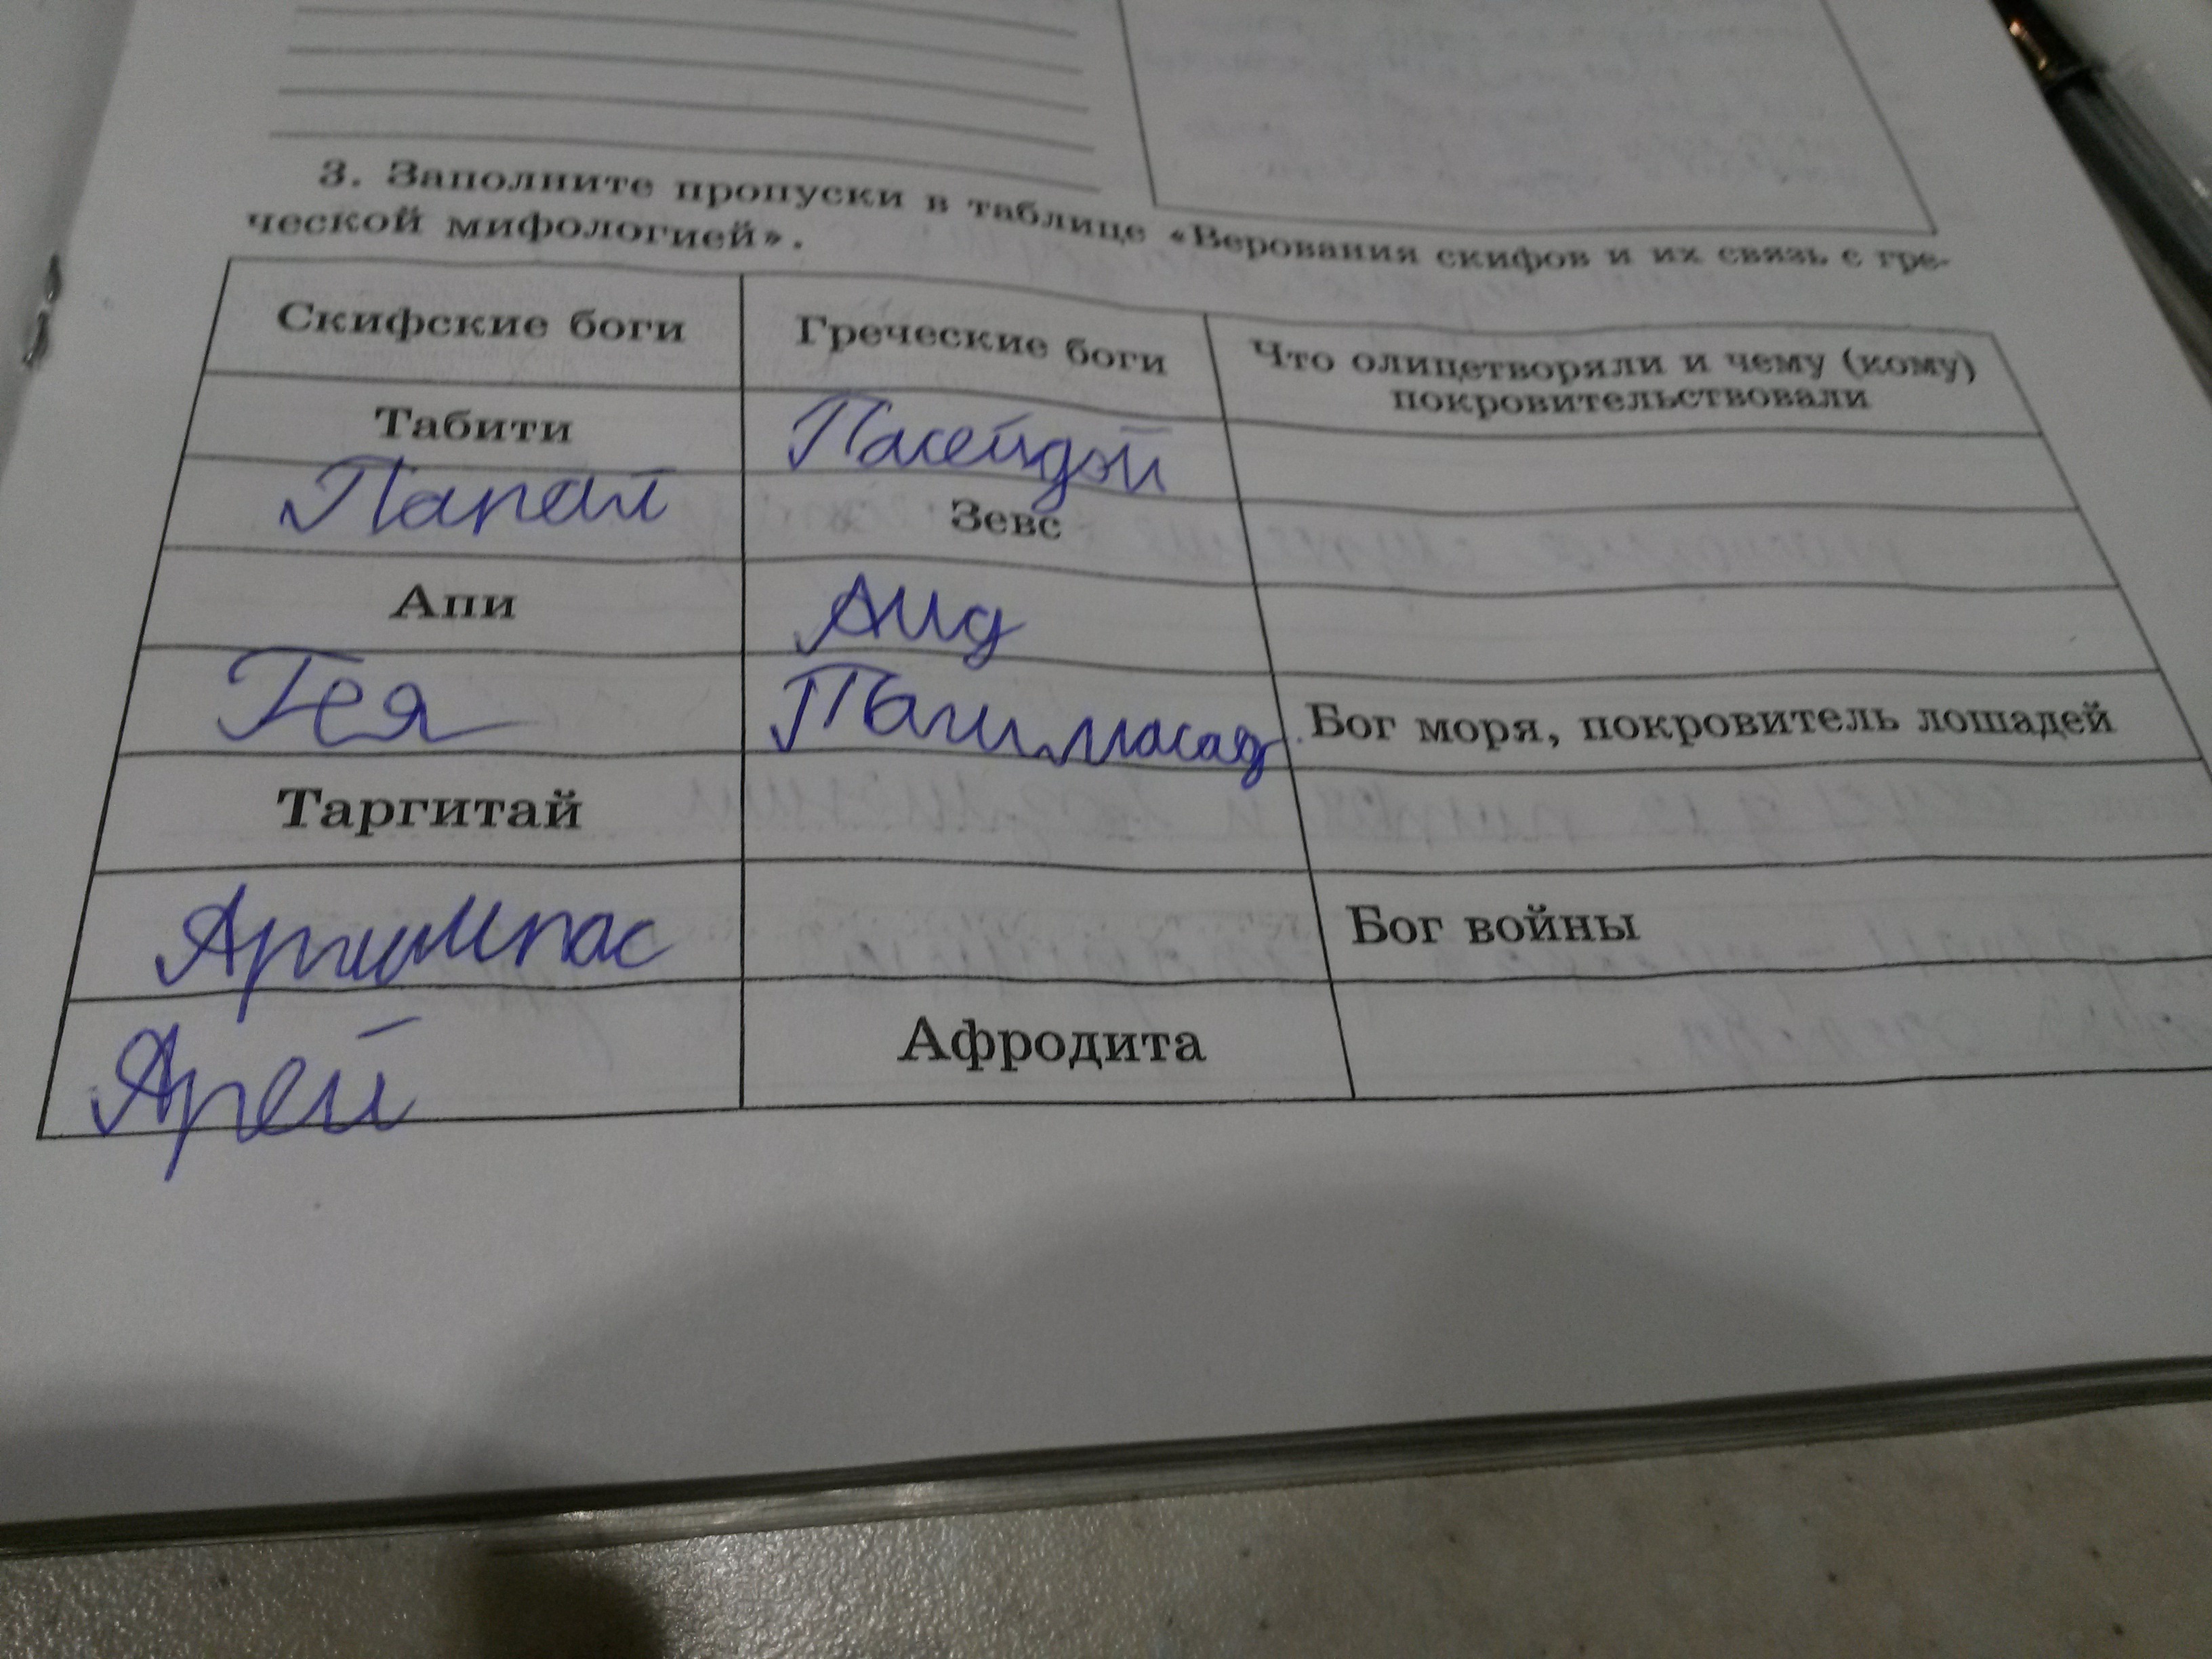 3. Заполните пропуски в таблице «Верования скифов и их связь с гре-
ческой мифологией».
Скифские боги Греческие боги Что олицетворяли и чему (кому)
покровительствовали
Табити Пасейдой
Папай Зевс
Апи Аид
Гея Пагимасад Бог моря, покровитель лошадей
Таргитай
Аргимпас Бог войны
Арей Афродита